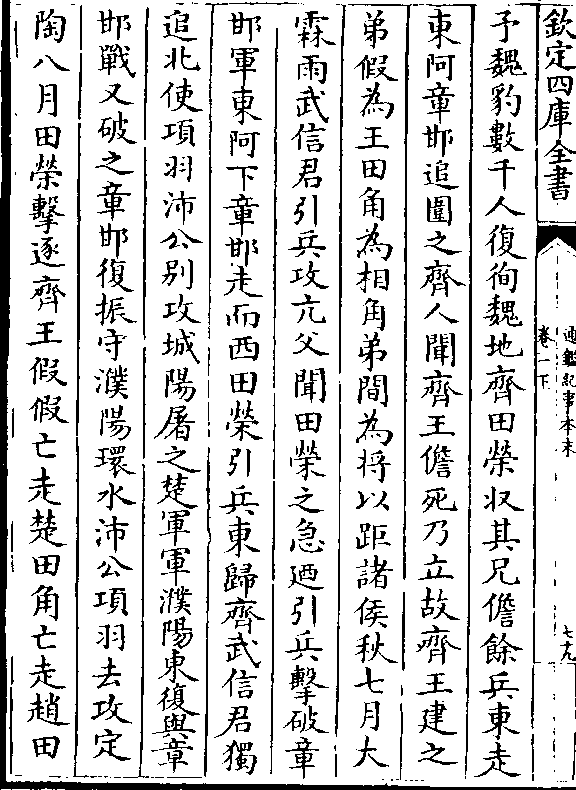 欽定四庫全書
通鑑紀事本末
卷一下
七九
予魏豹數千人復徇魏地齊田榮收其兄儋餘兵東走
東阿章邯追圍之齊人聞齊王儋死乃立故齊王建之
弟假為王田角為相角弟間為将以距諸侯秋七月大
霖雨武信君引兵攻亢父聞田榮之急廼引兵擊破章
邯軍東阿下章邯走而西田榮引兵東歸齊武信君獨
追北使項羽沛公别攻城陽屠之楚軍軍濮陽東復與章
邯戰又破之章邯復振守濮陽環水沛公項羽去攻定
陶八月田榮擊逐齊王假假亡走楚田角亡走趙田